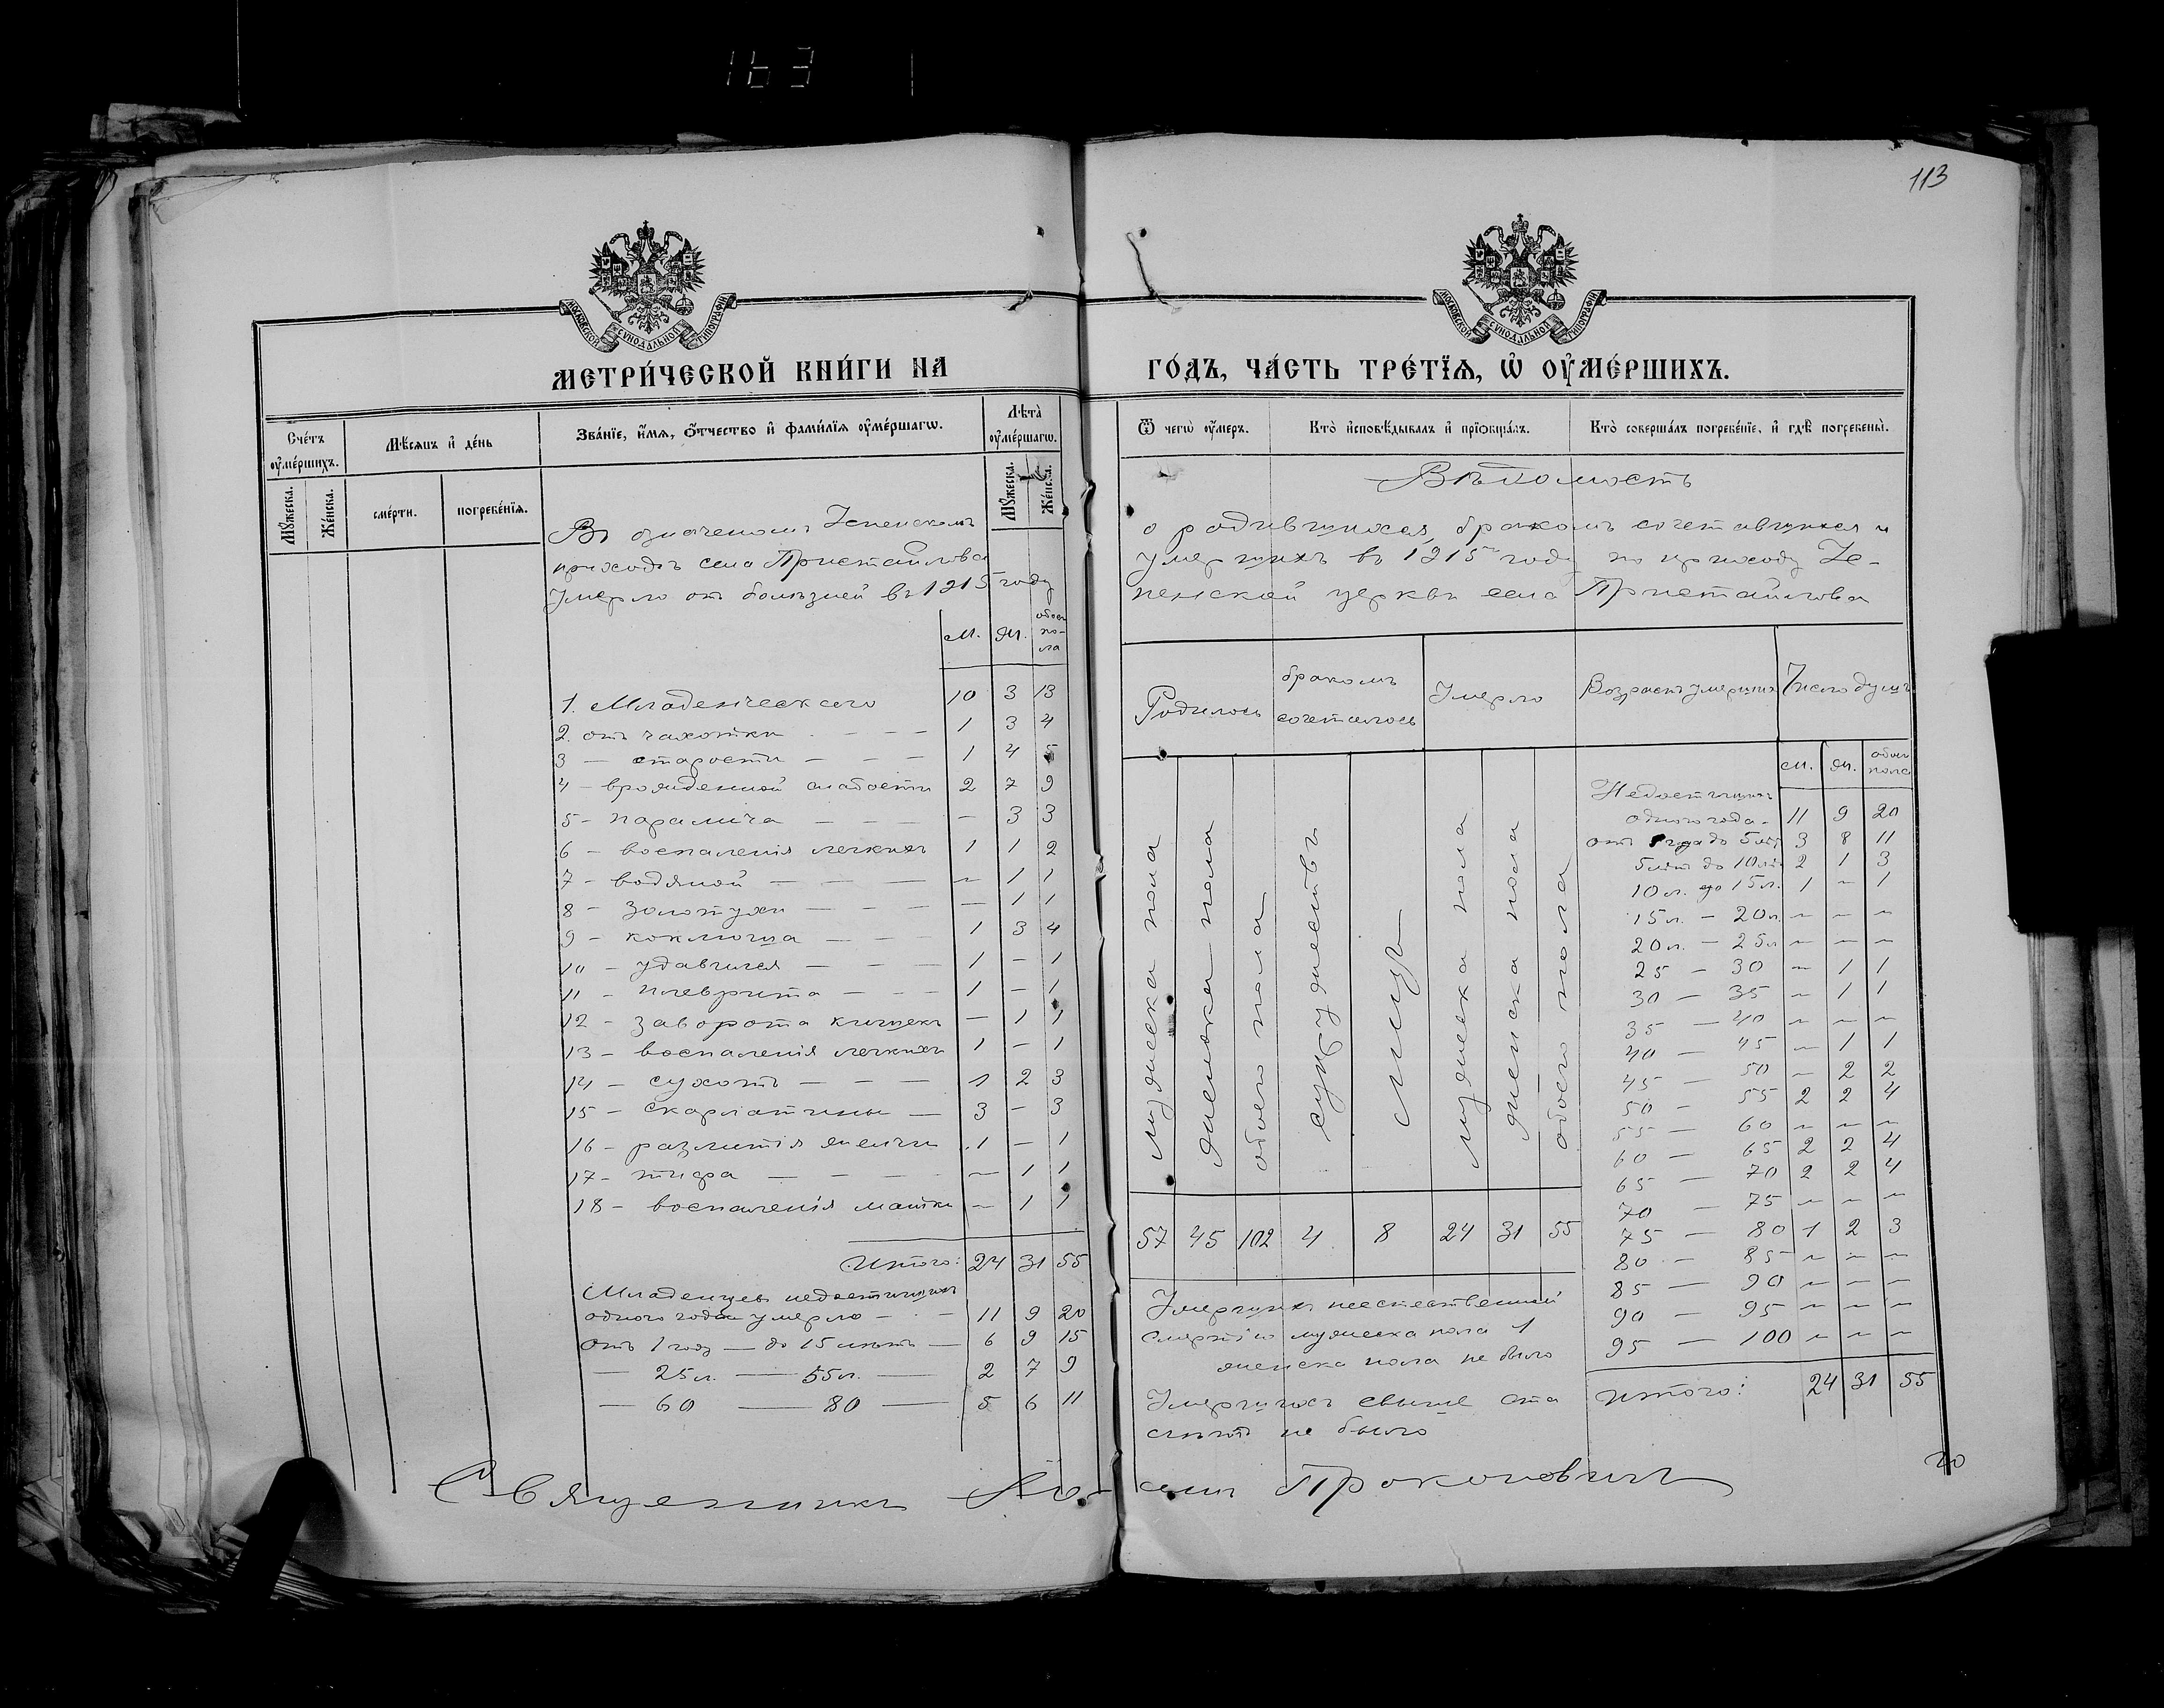 163
113
МОСКОВСКОЙ СУНОДАЛЬНОЙ ТИПОГРАФІИ
МОСКОВСКОЙ СУНОДАЛЬНОЙ ТИПОГРАФІИ
МЕТРИ́ЧЕСКОЙ КНИ́ГИ НА
ГО́ДЪ, ЧА́СТЬ ТРЕ́ТІЯ, Ѡ҆ ОУ҆МЕ́РШИХЪ.
Сче́тъ оу҆ме́ршихъ.
Мѣ́сяцъ и҆ де́нь
Зва́нїе, и҆́мя, ѻ҆́тчество и҆ фами́лїя оу҆ме́ршагѡ.
Лѣ́та оу҆ме́ршагѡ.
Мꙋ́жеска.
Же́нска.
сме́рти.
погребе́нїя.
Мꙋ́жеска.
Же́нска.
Въ означеномъ Успенскомъ
приходѣ села Пристайлова
Умерло отъ болѣзней въ 1915 году
м. ж. обоего пола
1. Младенческаго 10 3 13
2. отъ чахотки - - - 1 3 4
3 — старости — - — 1 4 5
4 - врожденной слабости 2 7 9
5 - паралича — - - — 3 3
6 - воспаленія легкихъ 1 1 2
7 - водяной — — — — 1 1
8 - золотухи — - - — 1 1
9 - коклюша — - - 1 3 4
10 - удавился — — — 1 - 1
11 - плеврита — - - 1 - 1
12 - заворота кишекъ — 1 1
13 - воспаленія легкихъ 1 - 1
14 - сухотъ — — — 1 2 3
15 - скарлатины — 3 - 3
16 - разлитія желчи 1 — 1
17 - тифа — — - - — 1 1
18 - воспаленія матки — 1 1
Итого: 24 31 55
Младенцевъ недостигшихъ
одного года умерло - — 11 9 20
Отъ 1 году — до 15 лѣтъ — 6 9 15
— 25 л. — 55 л. — 2 7 9
— 60 — 80 — 5 6 11
Ѿ чегѡ̀ оу҆́меръ.
Кто̀ и҆сповѣ́дывалъ и҆ прїѻбща́лъ.
Кто̀ соверша́лъ погребе́нїе, и҆ гдѣ̀ погребены̀.
Вѣдомость
о родившихся, бракомъ сочетавшихся и
умершихъ въ 1915 году по приходу Ус-
пенской церкви села Пристайлова
Родилось
бракомъ сочеталось
Умерло
Возрастъ умершихъ
Число душъ
мужеска пола
женска пола
обоего пола
супружествъ
лицъ
мужеска пола
женска пола
обоего пола
57 45 102 4 8 24 31 55
м. ж. обоего пола
Недостигшихъ
одного года - 11 9 20
отъ 1 года до 5 лѣт 3 8 11
5 лѣт до 10 лѣт 2 1 3
10 л. до 15 л. 1 — 1
15 л. — 20 л. — — —
20 л. — 25 л — — —
25 — 30 — 1 1
30 — 35 — 1 1
35 — 40 — — —
40 — 45 — 1 1
45 — 50 — 2 2
50 — 55 2 2 4
55 — 60 — — —
60 — 65 2 2 4
65 — 70 2 2 4
70 — 75 — — —
75 — 80 1 2 3
80 — 85 — — —
85 — 90 — — —
90 — 95 — — —
95 — 100 — — —
Итого: 24 31 55
Умершихъ неестественной
смертію мужеска пола 1
женска пола не было
Умершихъ свыше ста
лѣтъ не было
Священникъ Прокоповичъ